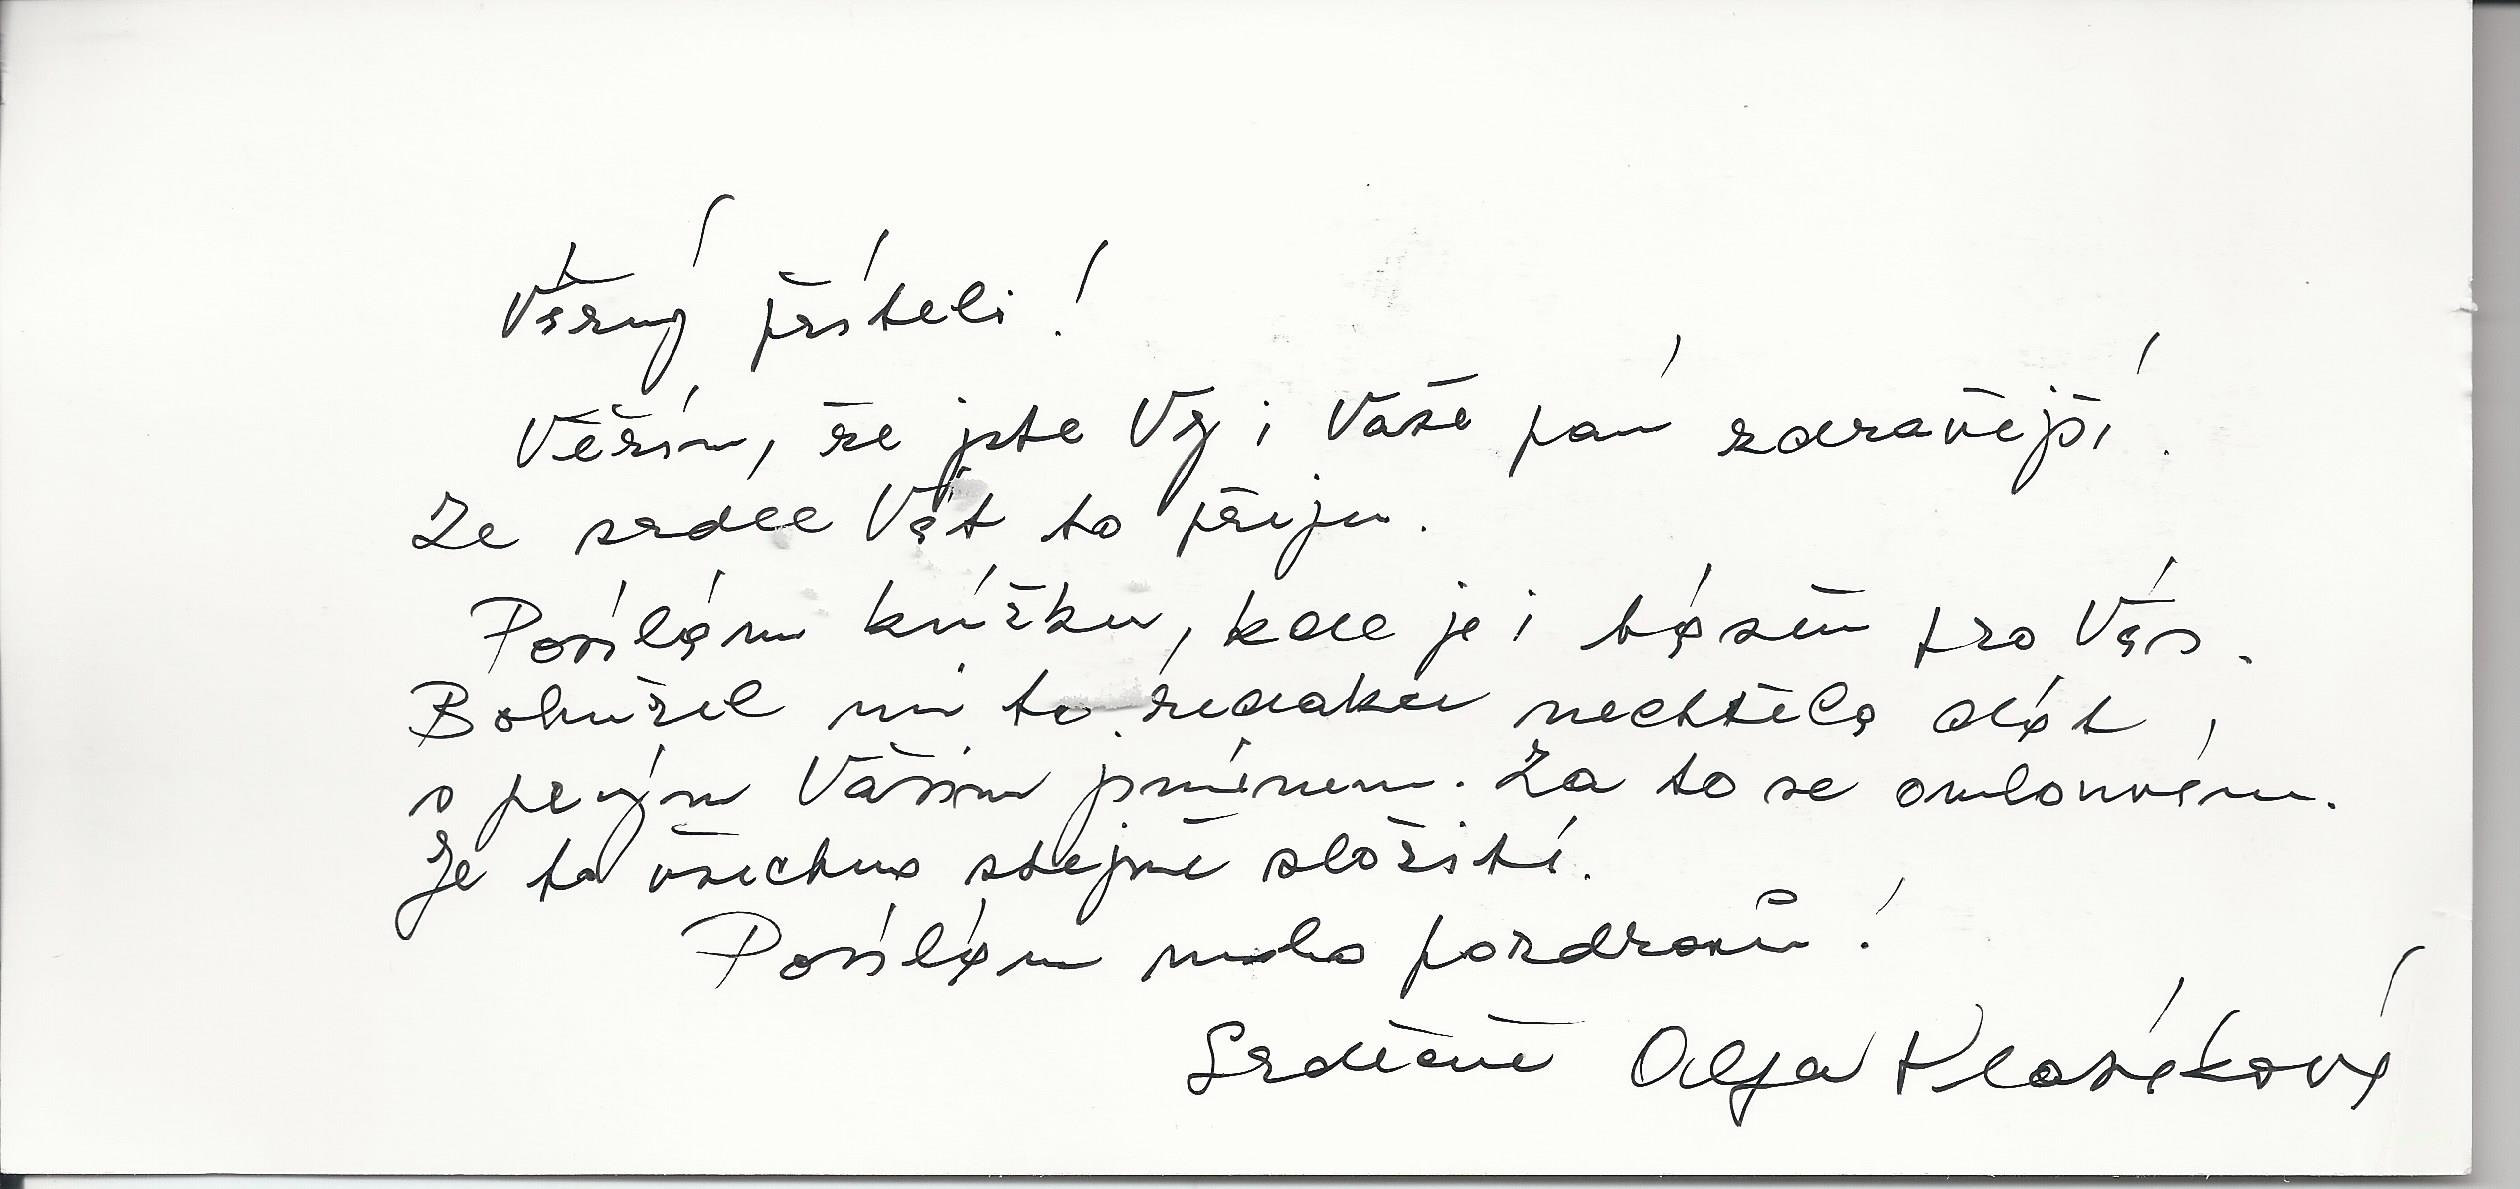 Věrný příteli!
Věřím, že jste Vy i Vaše paní zdravější.
Ze srdce Vát to přeju.
Posílám knížku, kde je i báseň pro Vás.
Bohužel mi to redakce nechtěla dát,
s plným Vaším jménem. Za to se omlouvám.
Je to všechno stejně složité.
Posílám mnoho pozdravů!
Srdečně Olja